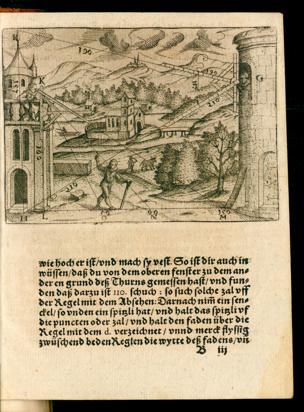 K
G
H L M
wie hoch er ist/vnd mach sy vest. So ist dir auch in
wüssen/daß du von dem oberen fenster zu dem an-
der en grund deß Thurns gemessen hast/ vnd fun-
den daß darzu ist 110. schuch : so such solche zal vff
der Regel mit dem Absehen: Darnach nim ein sen-
ckel/ so vnden ein spitzli hat/ vnd halt das spitzli vf
die puncten oder zal/ vnd halt den faden über die
Regel mit dem d. verzeichnet / vnnd merck flyssig
zwüschend beden Reglen die wytte deß fadens/vñ
B iij